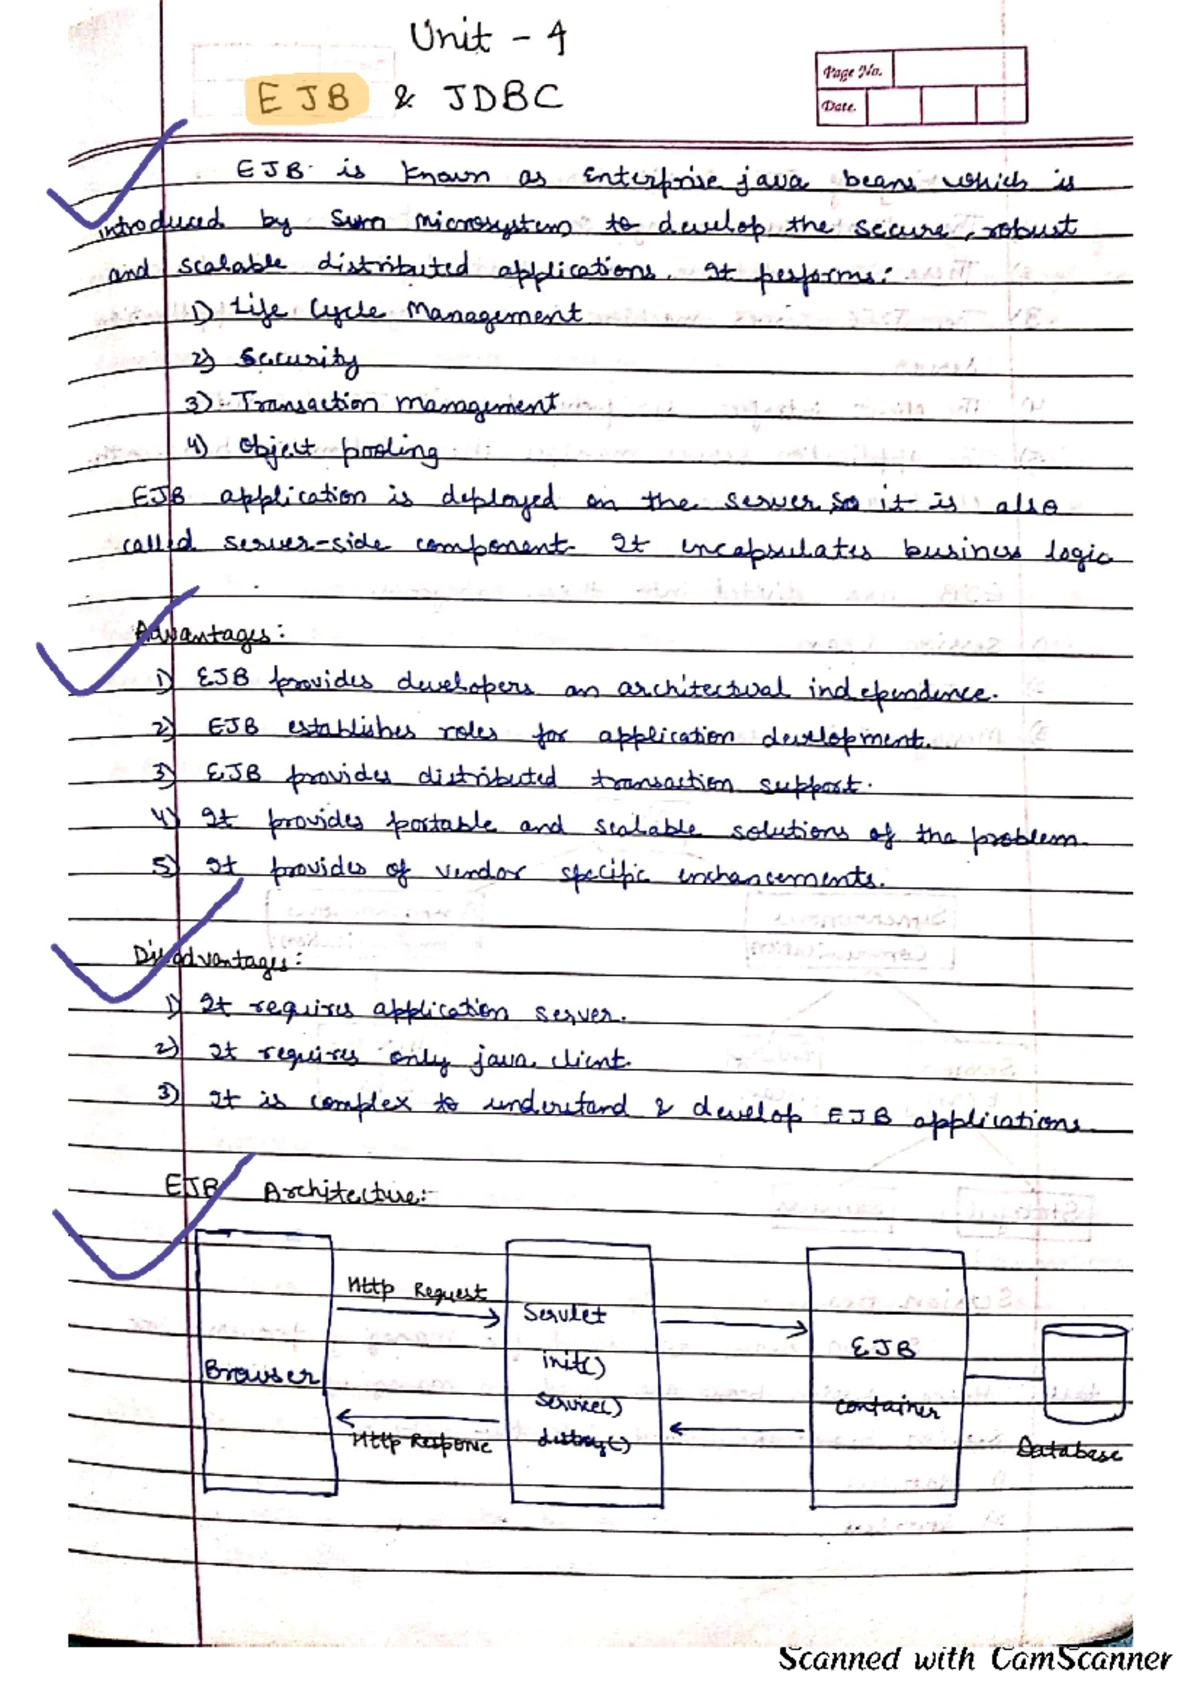 Unit - 4
EJB & JDBC
Page No.
Date.
EJB is known as Enterprise java beans which is
introduced by Sum microsystem to develop the secure, robust
and scalable distributed applications. It performs:
1) Life Cycle Management
2) Security
3) Transaction management
4) Object pooling
EJB application is deployed on the server, so it is also
called server-side component. It encapsulates business logic
Advantages:
1) EJB provides developers an architectual independence.
2) EJB establishes roles for application development.
3) EJB provides distributed transaction support.
4) It provides portable and scalable solutions of the problem.
5) It provides of vendor specific enchancements.
Disadvantages:
1) It requires application server.
2) It requires only java client.
3) It is complex to understand & develop EJB applications
EJB Architecture:-
Http Request
Servlet
EJB
init()
Browser
service()
container
Http Response
distroy()
Database
Scanned with CamScanner